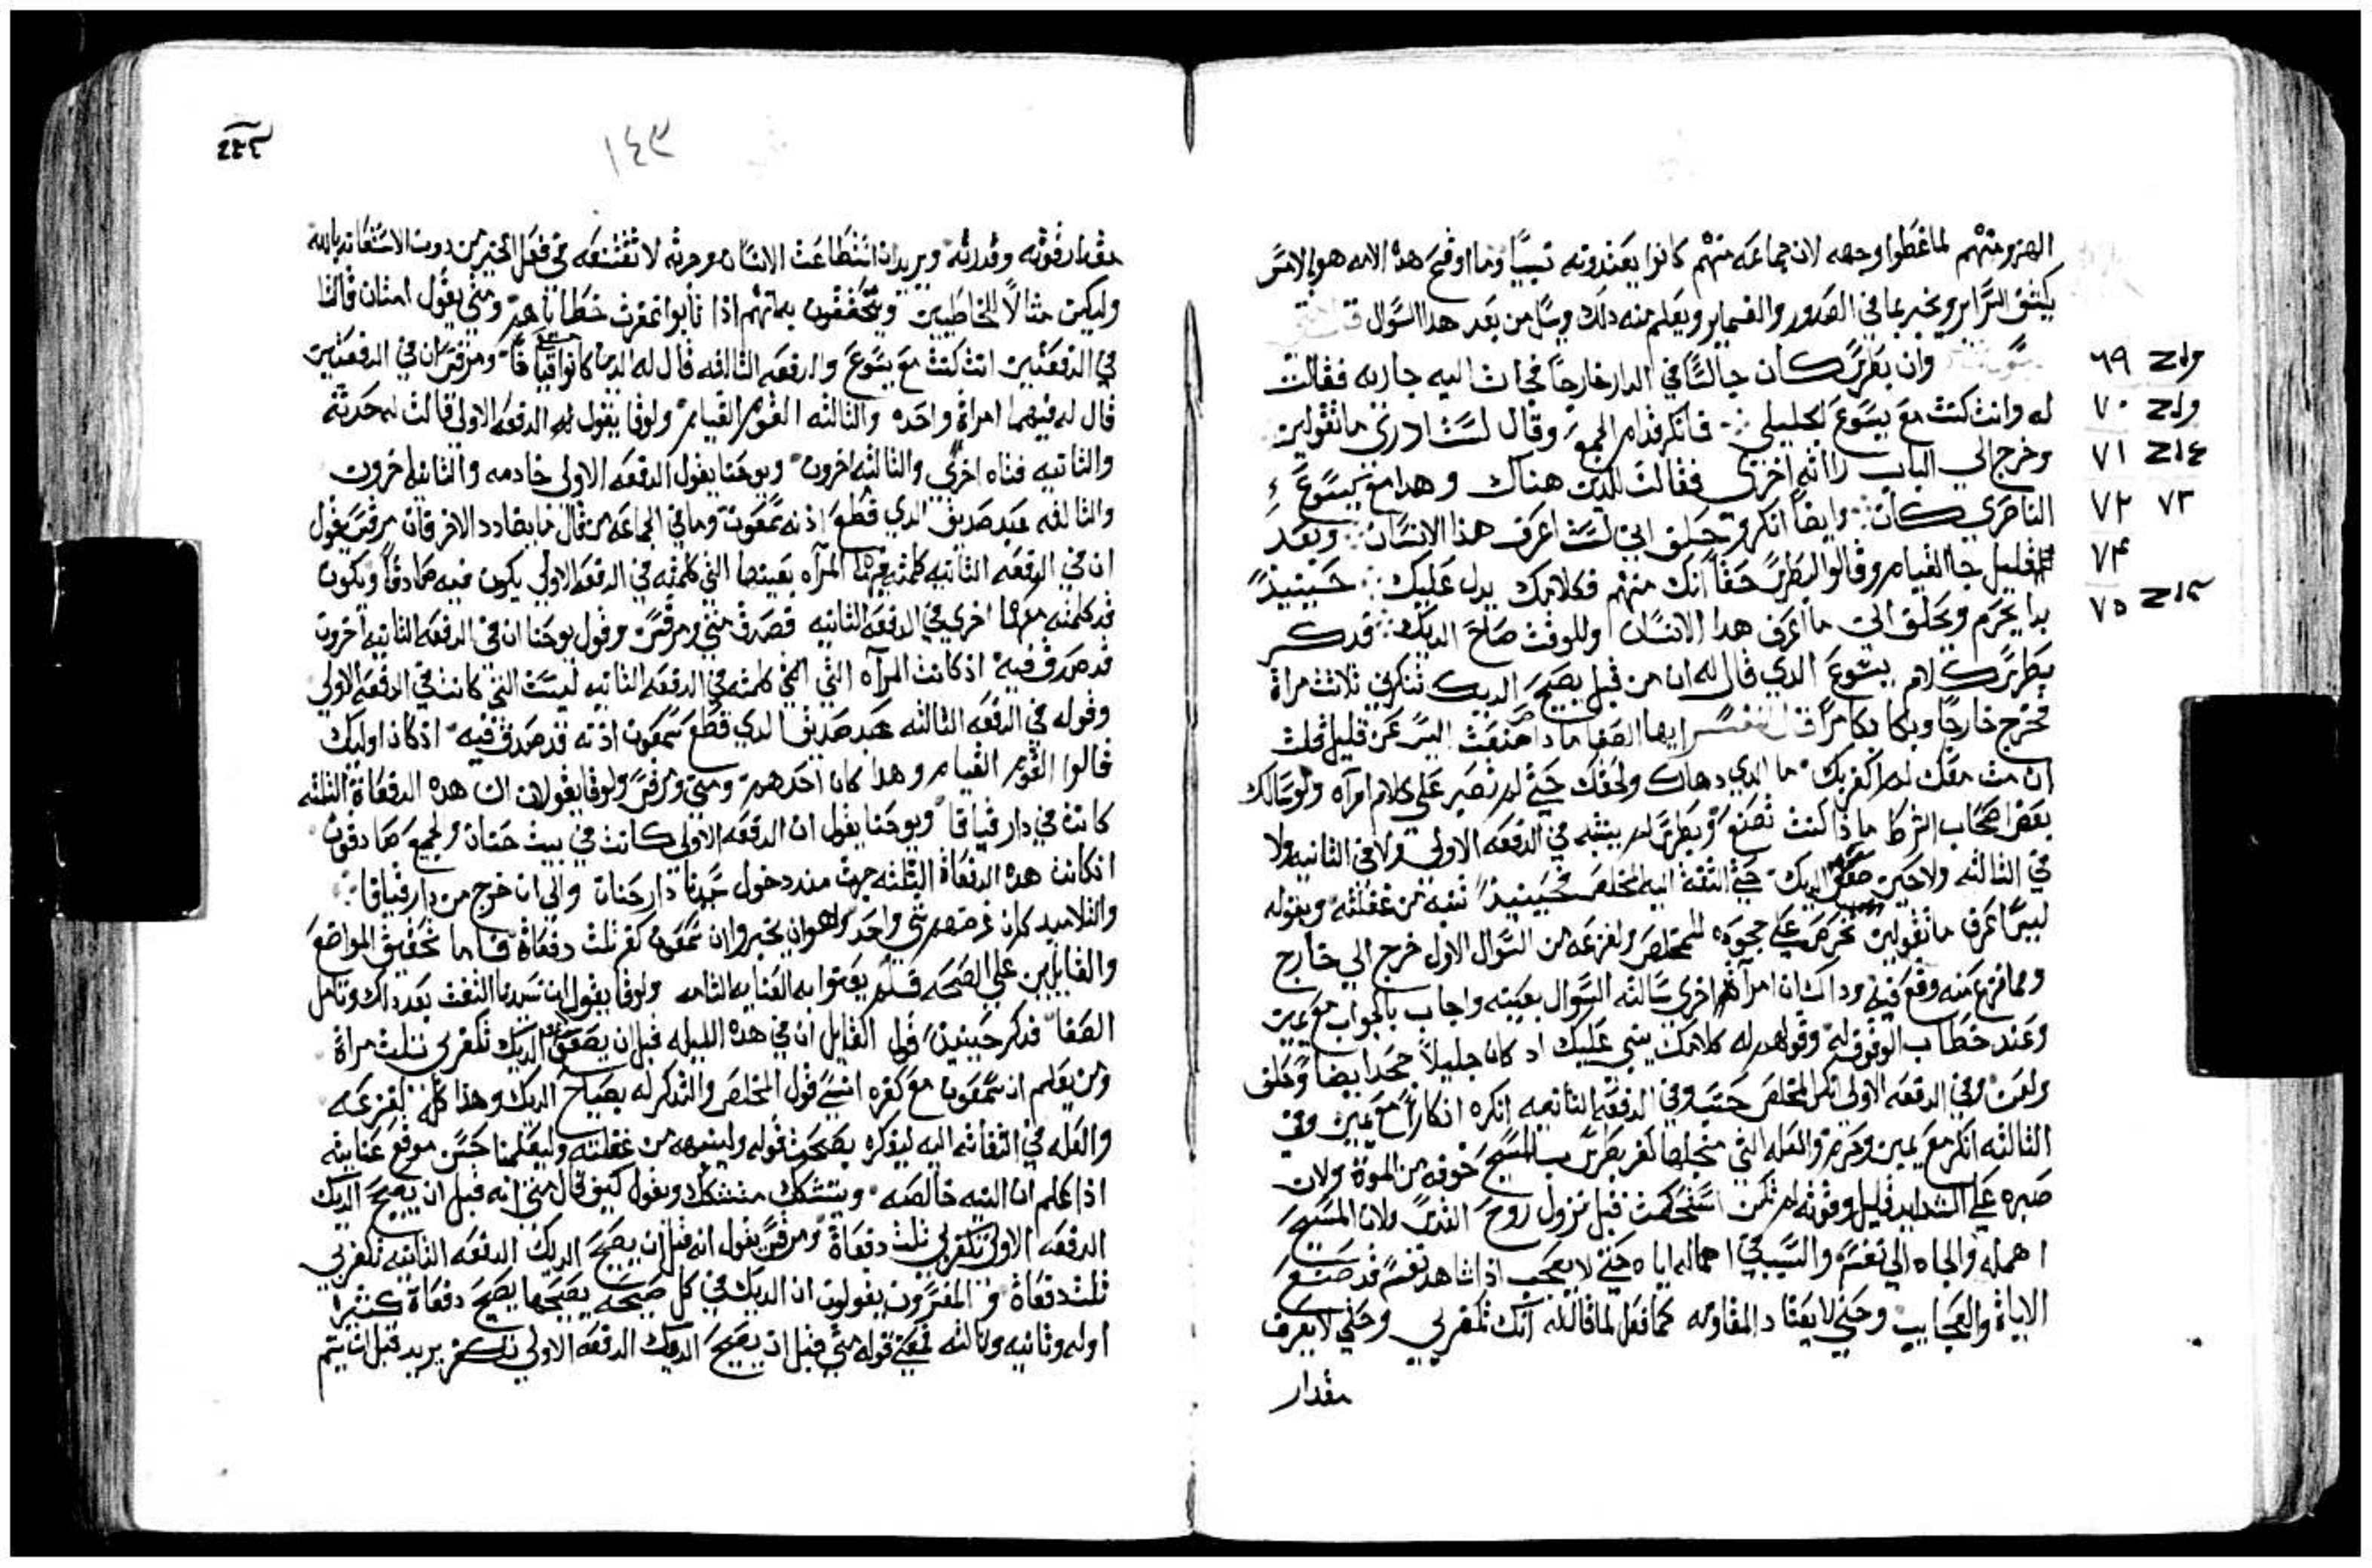 منهم لما غطوا وجهه لان جماعه منهم كانوا يعتدونه نبياً وما اوقح هده الامه هو الامر
يكشف السراير ويخبر بما في الصدور والضماير ويعلم منه دلك وسل من بعد هدا السوال
وان بطرس كان جالسًا في الدار خارجًا فجات اليه جاريه فقالت
له وانت كنت مع يسوع الجليلي فانكر قدام الجمع وقال لست ادري ما تقولين
وخرج الي الباب راته اخري فقالت للدين هناك وهدا مع يسوع
الناصري كان وايضاً انكر وحلف اني لست اعرف هذا الانسان وبعد
قليل جا القيام وقالوا لبطرس حقاً انك منهم فكلامك يدل عليك حينيذٍ
بدا يحرم ويحلف اني ما اعرف هدا الانسان وللوقت صاح الديك فدكر
بطرس كلام يسوع الدي قال له ان من قبل يصيح الديك تنكرني ثلاث مراة
فخرج خارجًا وبكا بكا مرًا ايها الصفا ما دا صنعت اليس عن قليل قلت
ان مت معك لم اكفر بك ما الدي دهاك ولحقك حتي لم تصبر علي كلام امرآه ولو سالك
بعض اصحاب الشرط ما ذا كنت تصنع وبطرس لم ينتبه في الدفعه الاولي ولا في الثانيه ولا
في الثالثه ولا حين صعق الديك حتي التفت اليه المخلص فحينيذٍ تنبه من غفلته وبقوله
ليس اعرف ما تقولين علي جحوده للمخلص ولفزعه من السوال الاول خرج الي خارج
ومما فزع منه وقع فيه وداك ان امرآة اخري سالته السوال بعينه واجاب بالجواب مع يمين
وعند خطاب الوقوف له وقولهم له كلامك ينبي عليك اد كان جليلاً جحد ايضاً وحلف
ولعن وفي الدفعه الاولي انكر المخلص حسب وفي الدفعه الثانيه انكره انكاراً مع يمين وفي
الثالثه انكر مع يمين وحرم والعله التي من اجلها كفر بطرس بالمسيح خوفه من الموة ولان
صبره علي الشدايد قليل وقوته لم تكن استحكمت قبل نزول روح القدس ولان المسيح
اهمله والجاه الي نفسه والسبب في اهماله اياه حتي لا يعجب اذا شاهد نفسه قد صنع
الاياة والعجايب وحتي لا يعتاد المقاومه كما فعل لما قال له انك تكفر بي وحتي لا يعرف
مقدار
٦٩
٧٠
٧١
٧٣ ٧٢
٧٤
٧٥
١٤٣
مقدار قوته وقدرته ويريد ان استطاعت الانسان وحريته لا تقنعه في فعل الخير من دون الاستعانه بالله
وليكن مثالاً للخاطيين ويتحققون به انهم اذا تابوا غفرت خطاياهم ومتي يقول امتان قالتا
في الدفعتين انت كنت مع يسوع والدفعه الثالثه قال له الدين كانوا قياماً ومرقس ان في الدفعتين
قال له فيهما امراة واحده والثالثه القوم القيام ولوقا يقول ان الدفعه الاولي قالت له حدثه
والثانيه فتاه اخري والثالثه اخرون ويوحنا يقول الدفعه الاولي خادمه والثانيه اخرون
والثالثه عبد صديق الدي قطع اذنه سمعون وما في الجماعه من قال ما يضادد الاخر فان مرقس يقول
ان في الدفعه الثانيه كلمته المرآه بعينها التي كلمته في الدفعه الاولي يكون فيه صادقًا ويكون
قد كلمته معها اخري في الدفعه الثانيه فصدق متي ومرقس وقول يوحنا ان في الدفعه الثانيه اخرون
قد صدق فيه اذ كانت المرآه التي كلمته في الدفعه الثانيه ليست التي كانت في الدفعه الاولي
وقوله في الدفعه الثالثه عبد صديق الدي قطع سمعون اذنه قد صدق فيه اذ كان اوليك
قالوا القوم القيام وهدا كان احدهم ومتي ومرقس ولوقا يقولان ان هده الدفعاة الثلثه
كانت في دار قيافا ويوحنا يقول ان الدفعه الاولي كانت في بيت حنان والجميع صادقون
اذ كانت هده الدفعاة الثلثه جرت مند دخول سيدنا دار حنان والي ان خرج من دار قيافا
والتلاميد كان غرضهم شي واحد وهو ان يخبروا ان سمعون كفر ثلث دفعاة فاما تحقيق المواضع
والقايلين علي الصحه فلم يعتنوا به العنايه التامه ولوقا يقول ان سيدنا التفت بعد داك وتامل
الصفا فدكر حينيذٍ قول القايل ان في هده الليله قبل ان يصعق الديك تكفر بي ثلث مراة
ومن يعلم ان سمعون مع كفره انسي قول المخلص والتدكر له بصياح الديك وهذا كله لفزعه
والعله في التفاته اليه ليدكره بصحة قوله ولينبهه من غفلته وليعلمنا حسن موقع عنايته
اذا علم ان النيه خالصه ويتشكك متشكك ويقول كيف قال متي انه قبل ان يصيح الديك
الدفعه الاولي تكفر بي ثلث دفعاة ومرقس يقول انه قبل ان يصيح الديك الدفعه الثانيه تكفر بي
ثلث دفعاة والمفسرون يقولون ان الديك في كل صيحه يصيحها يصيح دفعاة كثيرة
اوله وثانيه وثالثه فمعني قوله متي قبل ان يصيح الديك الدفعه الاولي تكفر يريد قبل ان يتم